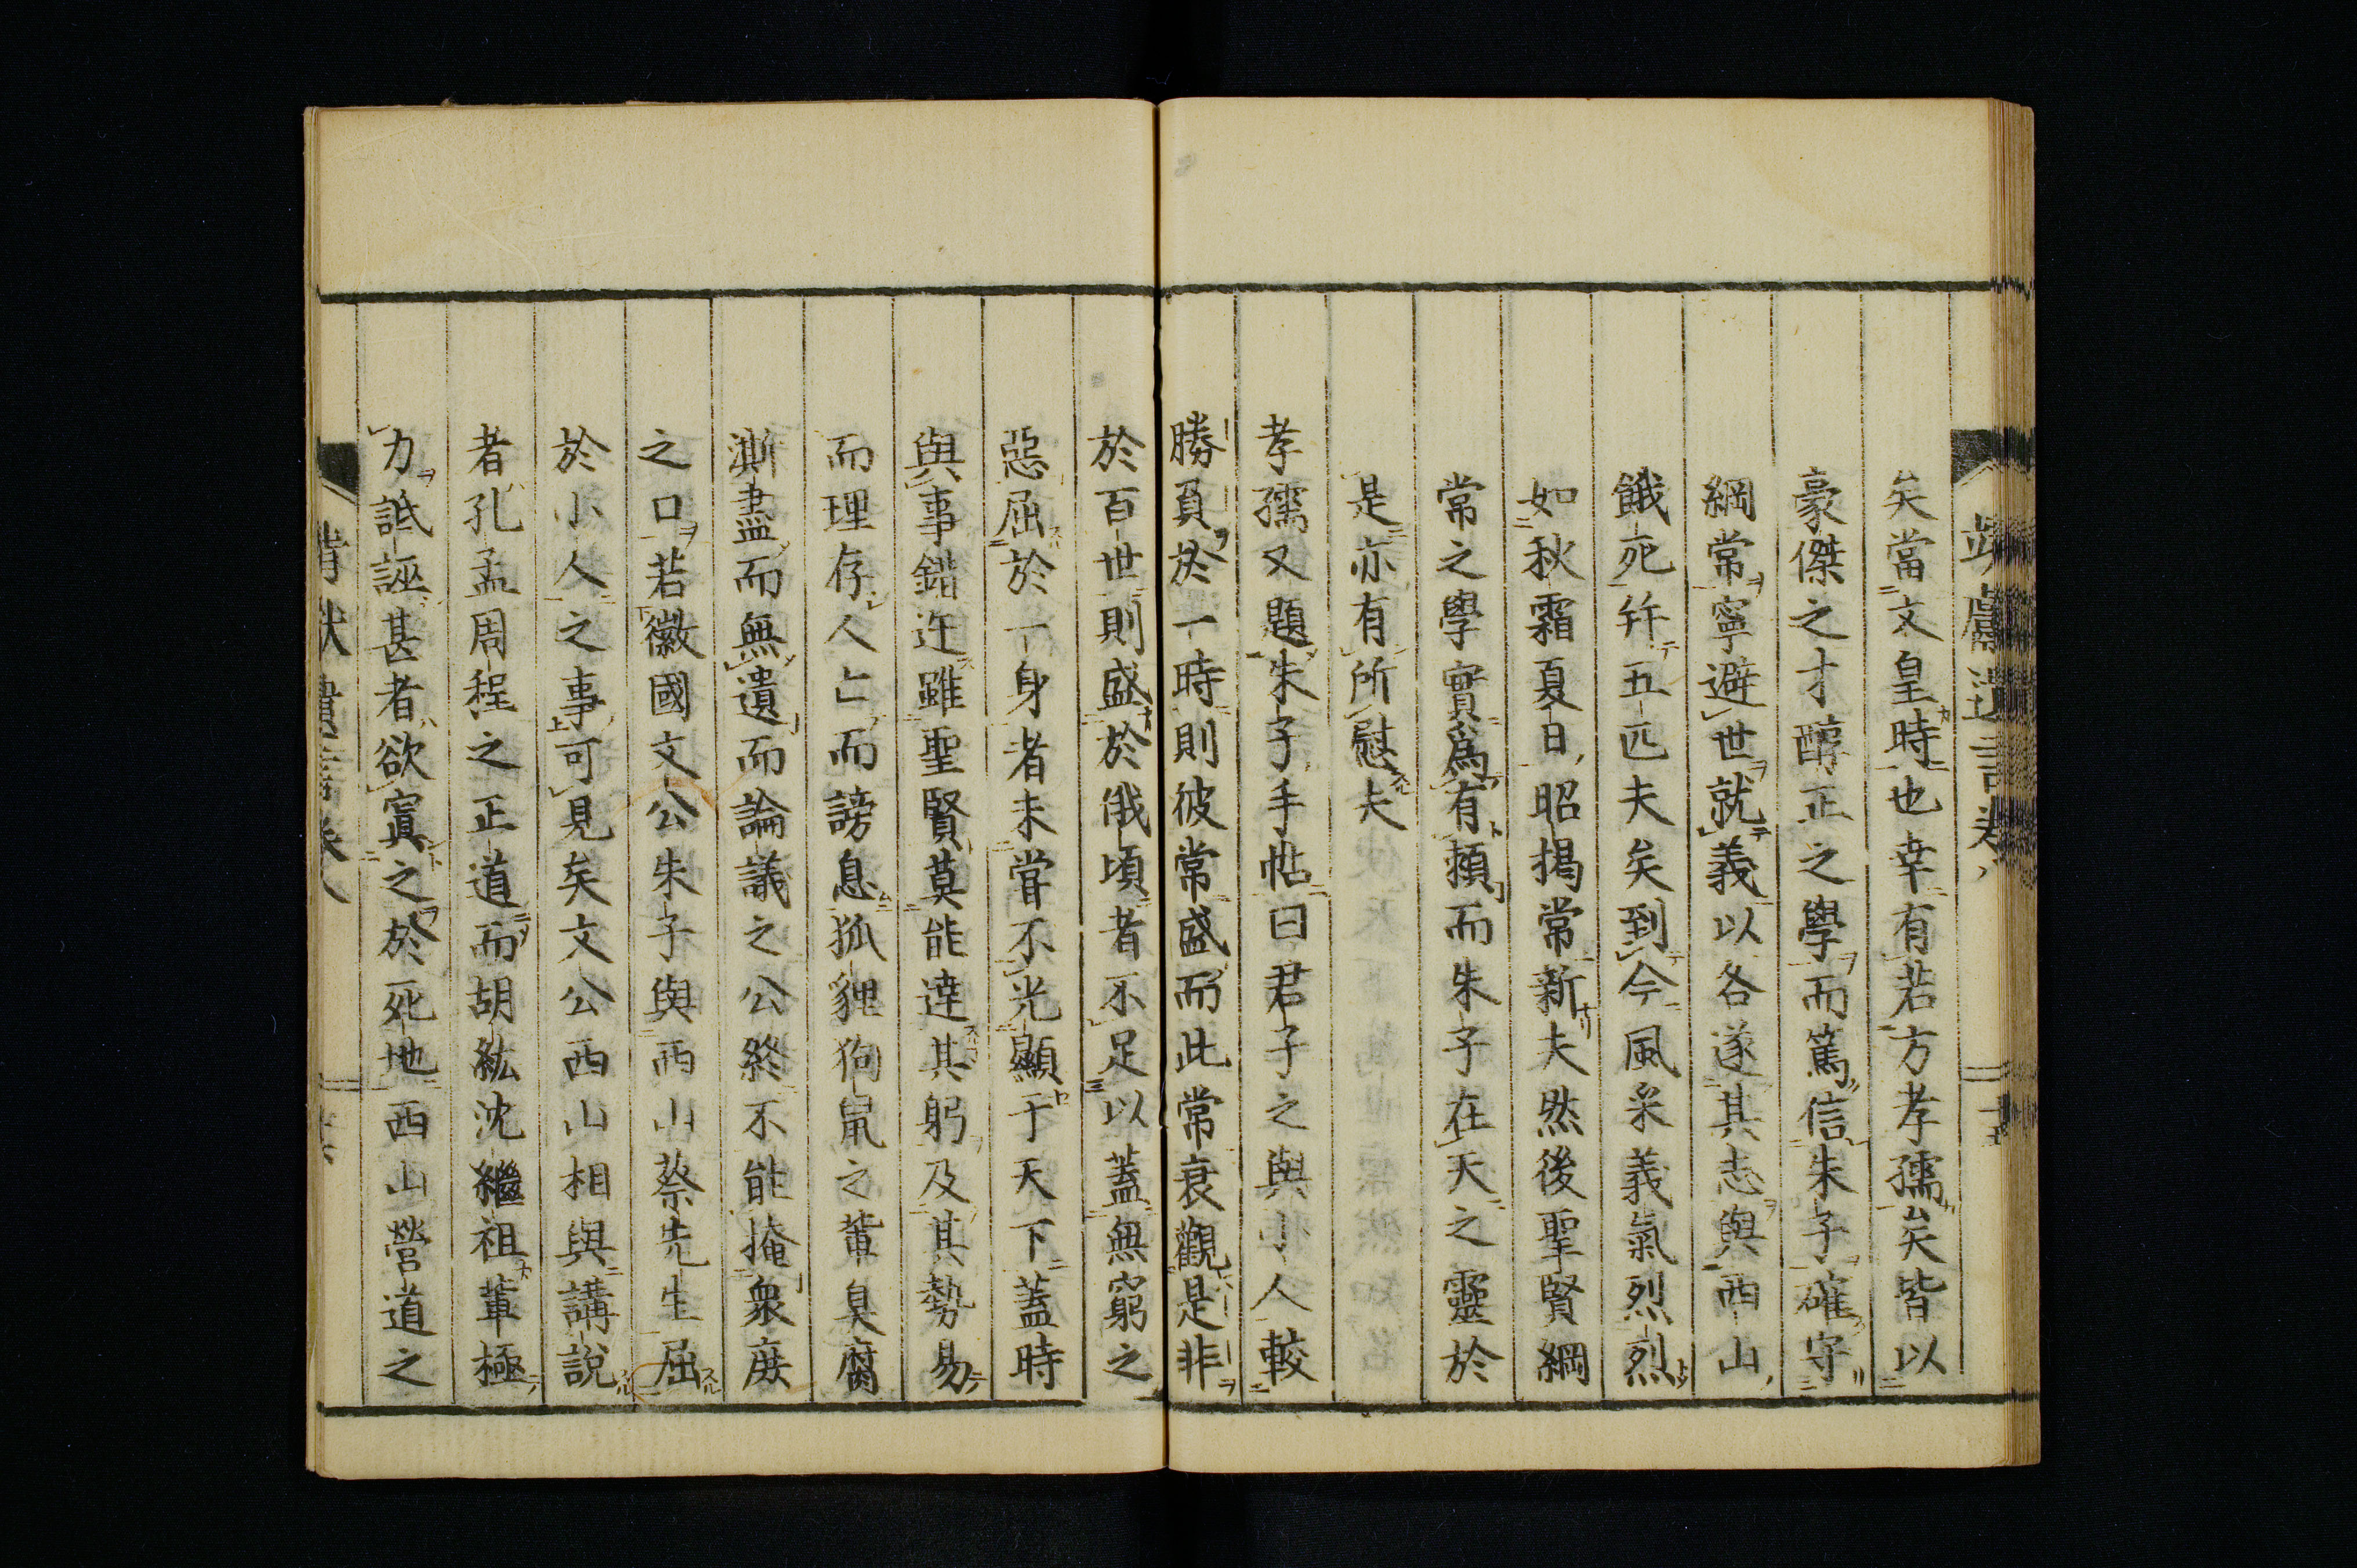 矣當文皇時也幸有若方孝孺矣皆以
豪傑之才醇正之學而篤信朱子確守
綱常寧避世就義以各遂其志與西山
餓死幷五匹夫矣到今風采義氣烈烈
如秋霜夏日昭揭常新夫然後聖賢綱
常之學實爲有頼而朱子在天之靈於
是亦有所慰夫
孝孺又題朱子手帖曰君子之與小人較
勝負於一時則彼常盛而此常衰觀是非
於百世則盛於俄頃者不足以蓋無窮之
惡屈於一身者未甞不光顯于天下蓋時
與事錯迕雖聖賢莫能達其躬及其勢易
而理存人亡而謗息狐貍狗鼠之輩臭腐
澌盡而無遺而論議之公終不能掩衆庶
之口若徽國文公朱子與西山蔡先生屈
於小人之事可見矣文公西山相與講說
者孔孟周程之正道而胡紘沈繼祖輩極
力詆誣甚者欲寘之於死地西山營道之